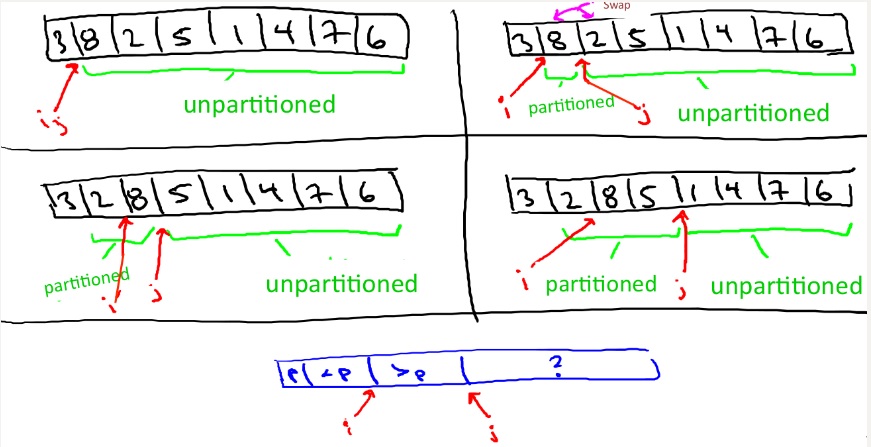 3|8|2|5|1|4|7|6
unpartitioned
i j
Swap
3|8|2|5|1|4|7|6
i
partitioned
j
unpartitioned
3|2|8|5|1|4|7|6
partitioned
i
j
unpartitioned
3|2|8|5|1|4|7|6
i
partitioned
j
unpartitioned
p|<p|>p| ?
i
j